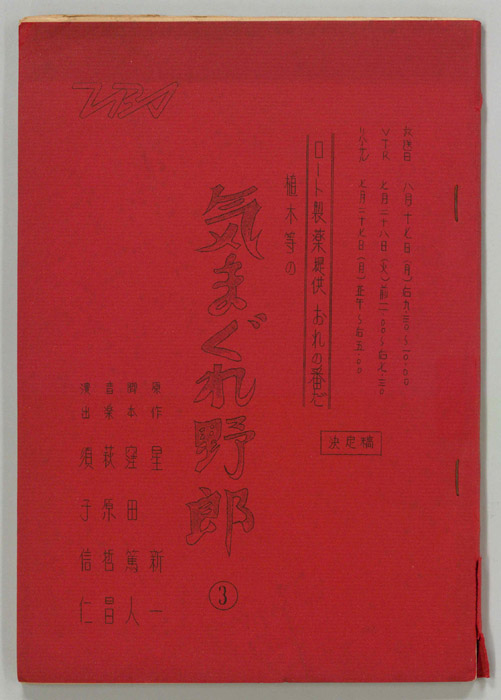 放送日 八月十七日(月)右九三〇〜一〇・〇〇
VTR 七月二十八日(火)前一一・〇〇〜右七・三〇
リハーサル 七月二十七日(月)正午〜右五・〇〇
ロート製薬提供 おれの番だ
決定稿
植木等の
気まぐれ野郎
③
原作 星新一
脚本 窪田篤人
音楽 萩原哲晶
演出 須子信仁